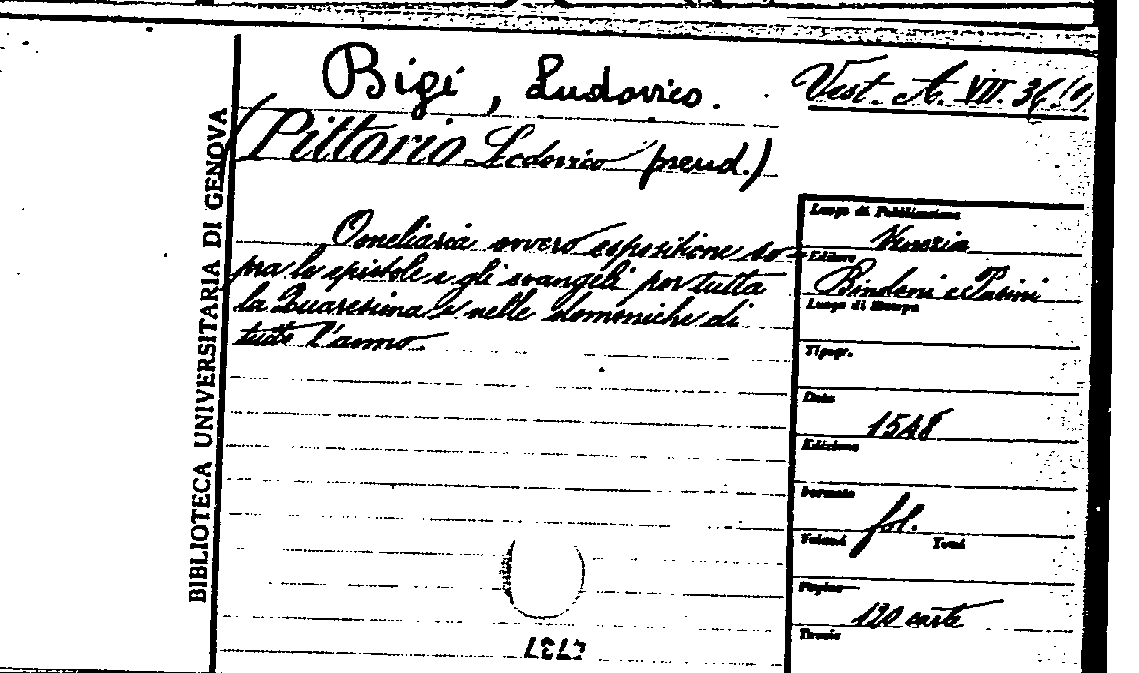 BIBLIOTECA UNIVERSITARIA DI GENOVA
Bigi, Ludovico.
Vest. A. VII. 36
(Pittorio Lodovico pseud.)
Omeliaria ovvero espositione so-
pra le epistole e gli evangeli per tutta
la Quaresima e nelle domeniche di
tutto l'anno.
Luogo di Pubblicazione
Venezia
Editore
Bindoni e Pasini
Luogo di Stampa
Tipogr.
Data
1548
Edizione
Formato
fol.
Volumi
Tomi
Pagine
120 carte